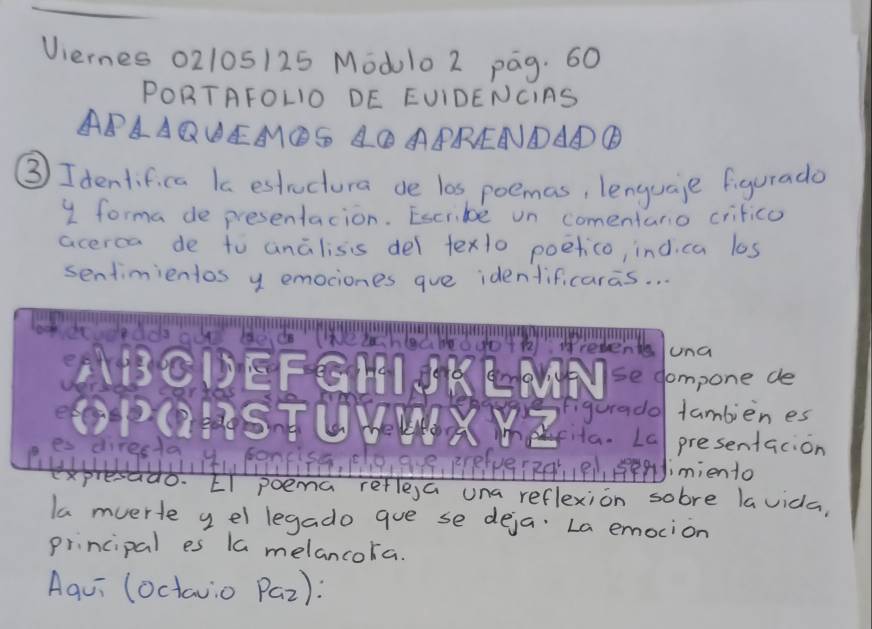 Viernes 02/05/25 Módulo 2 pág. 60
PORTAFOLIO DE EVIDENCIAS
APLAQUEMOS LO APRENDADO
③ Identifica la estructura de los poemas, lenguaje figurado
y forma de presentación. Escribe un comentario crítico
acerca de tú análisis del texto poético, indica los
sentimientos y emociones que identificarás...
una
ABCDEFGHIJKLMN se compone de
OPQRSTUVWXYZ figurado también es
La presentación
es directa y concisa, lo que sentimiento
expresado. El poema refleja una reflexión sobre la vida,
la muerte y el legado que se deja. La emoción
principal es la melancolía.
Aquí (Octavio Paz):